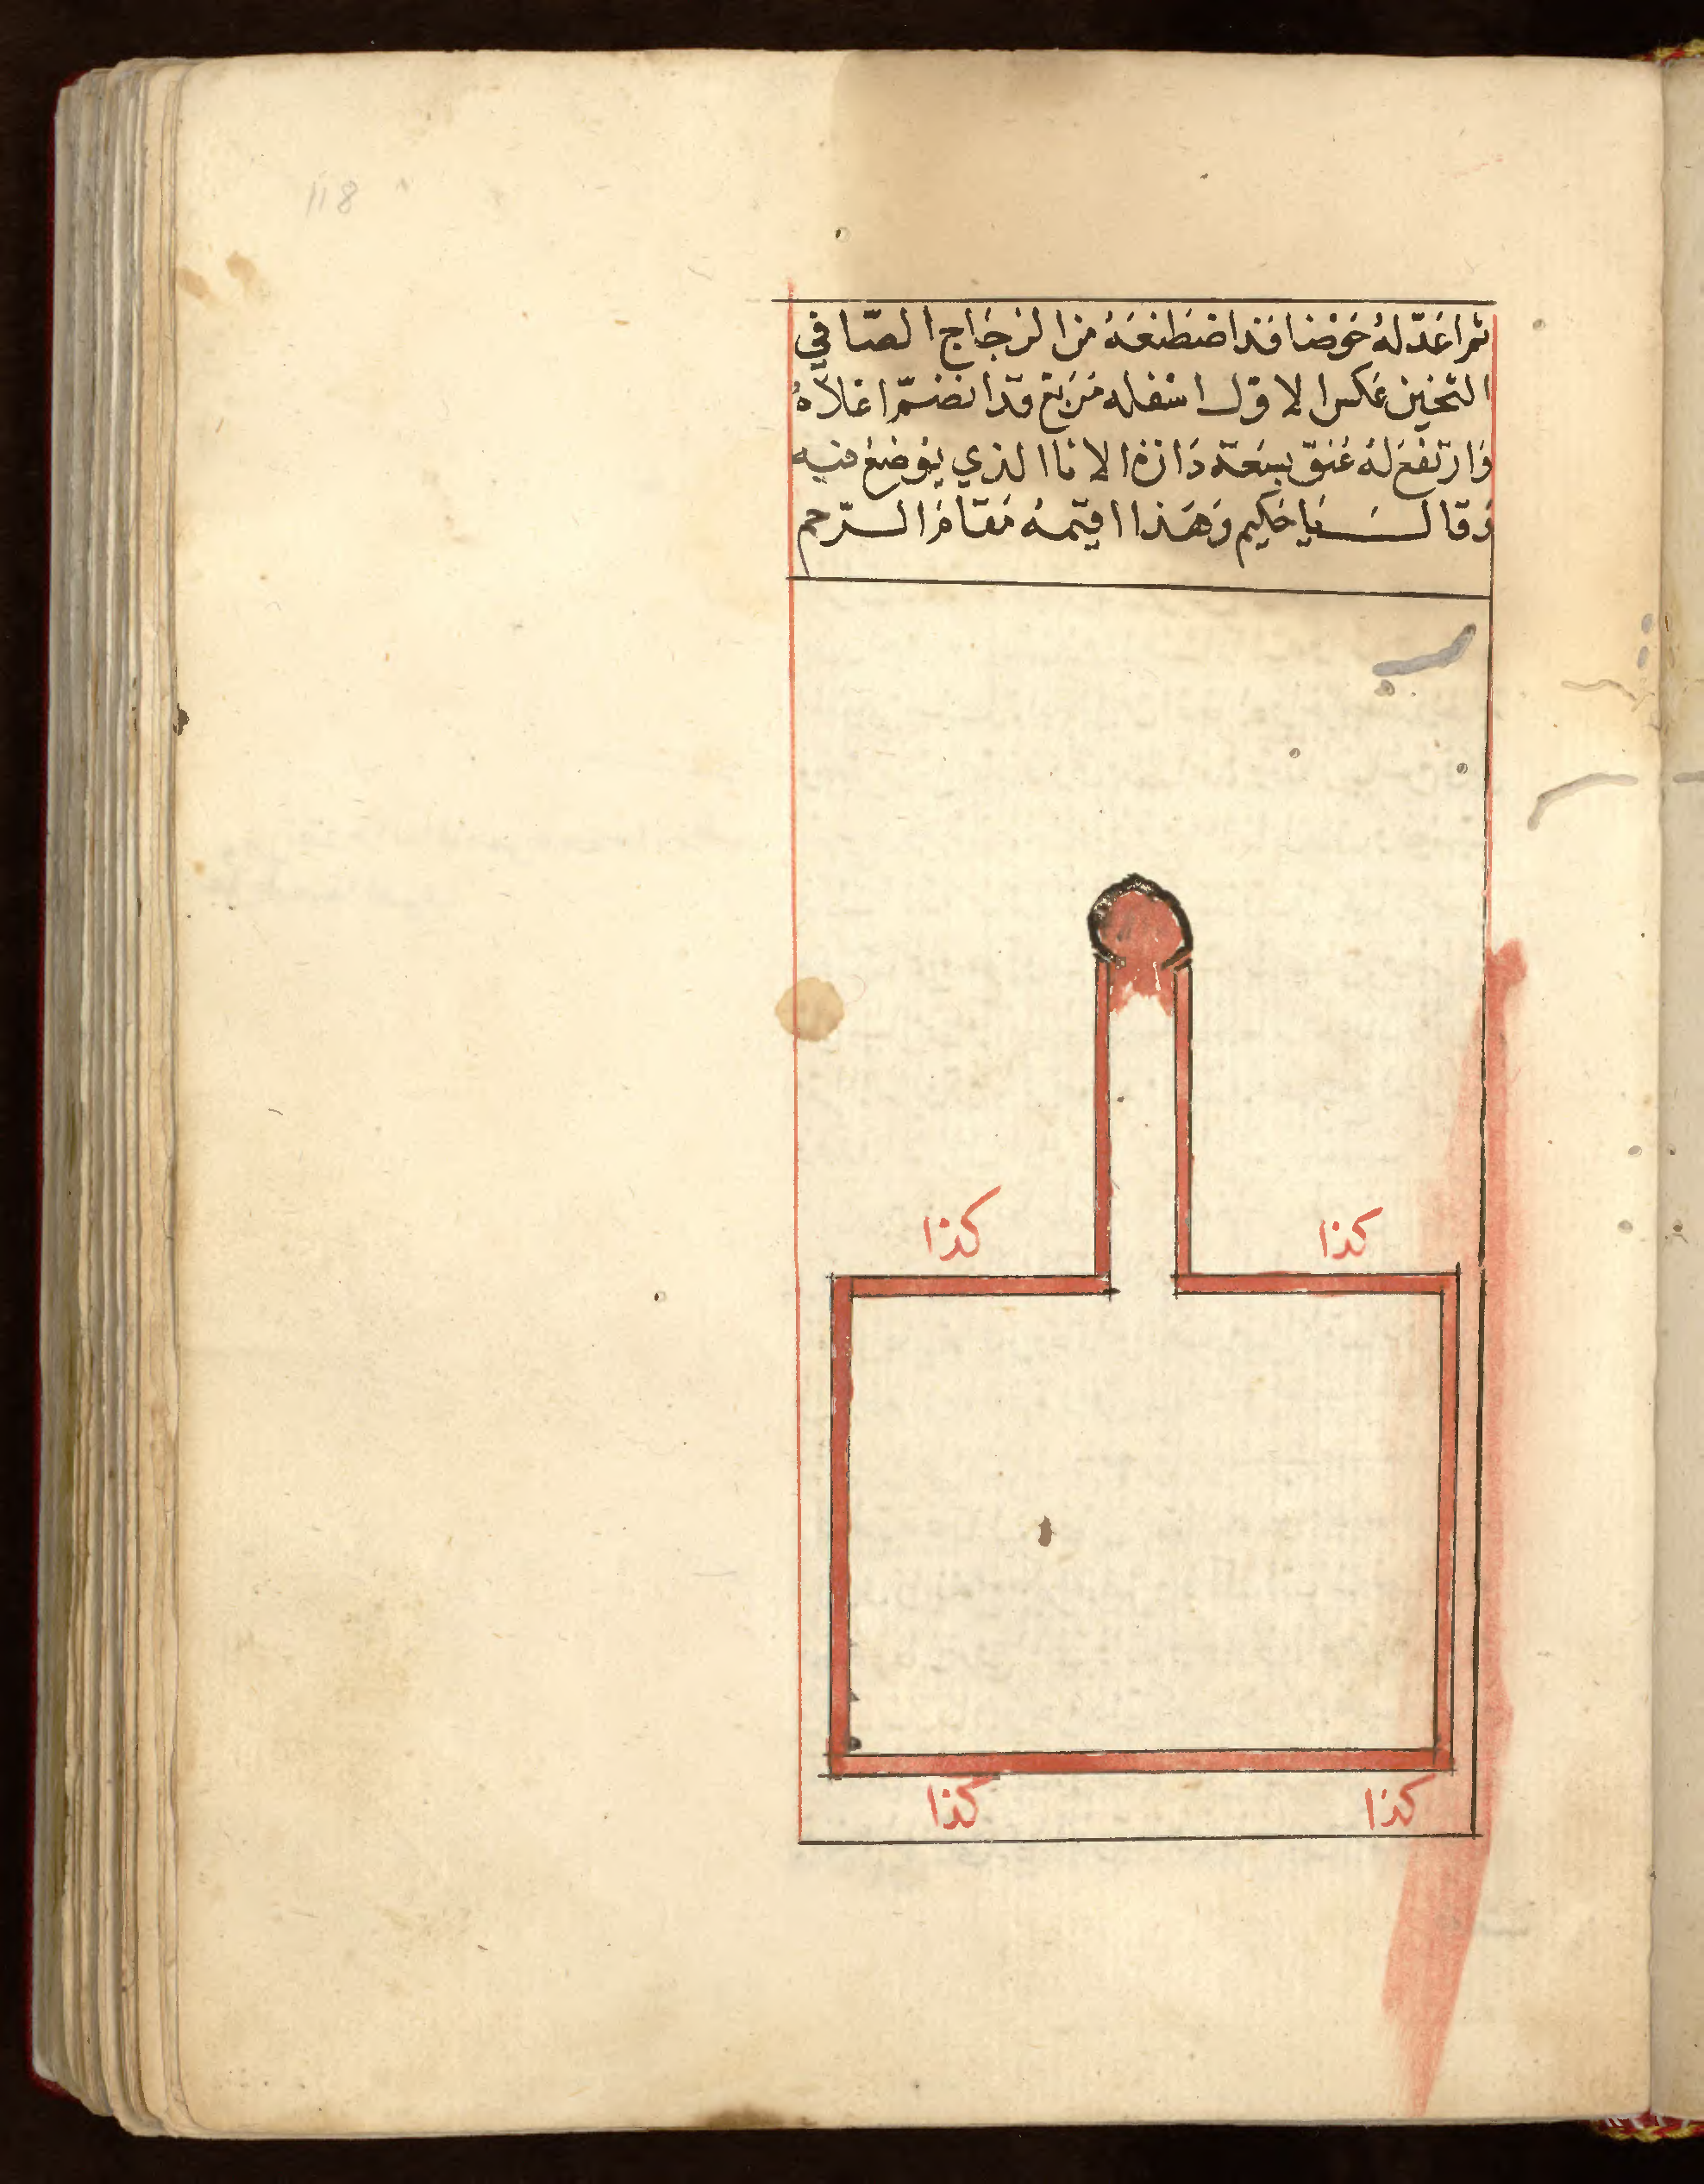 118
ثم اعد له حوضا قد اصطنعه من الزجاج الصافي
الثخين عكس الاول اسفله مربع قد انضم اعلاه
وارتفع له عنق بسعة دائرة الانا الذي يوضع فيه
وقال يا حكيم وهذا اقيمه مقام الرحم
كذا
كذا
كذا
كذا